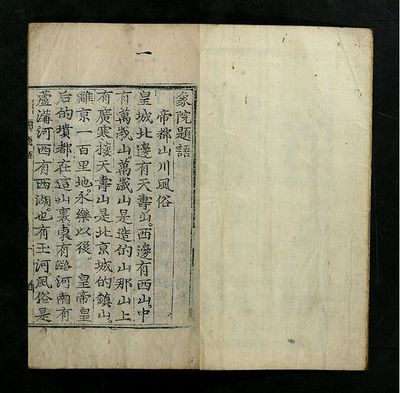 一
象院題語
帝都山川風俗
皇城北邊有天壽山。西邊有西山。中
有萬歲山。萬歲山是造的山那山上
有廣寒殿。天壽山是北京城的鎮山。
離京一百里地。永樂以後。皇帝皇
后的墳都在這山裏。東有潞河南有
蘆溝河西有西湖。也有玉河風俗是